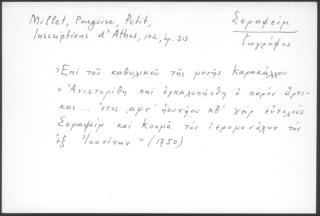 Millet, Pargoire, Petit,
Inscriptions d'Athos, 102, ἀρ. 313
Σεραφείμ
ζωγράφος
Ἐπὶ τοῦ καθολικοῦ τῆς μονῆς Καρακάλλου
"Ἀνιστορίθη καὶ ὁ παρὸν ἄρτι-
κας... ἔτος ͵αψν΄ κθ΄ χεὶρ εὐτελοῦς
Σεραφεὶμ καὶ Κοσμᾶ τῶν ἱερομονάχων τῶν
ἐξ Ἰωανίνων" (1750)